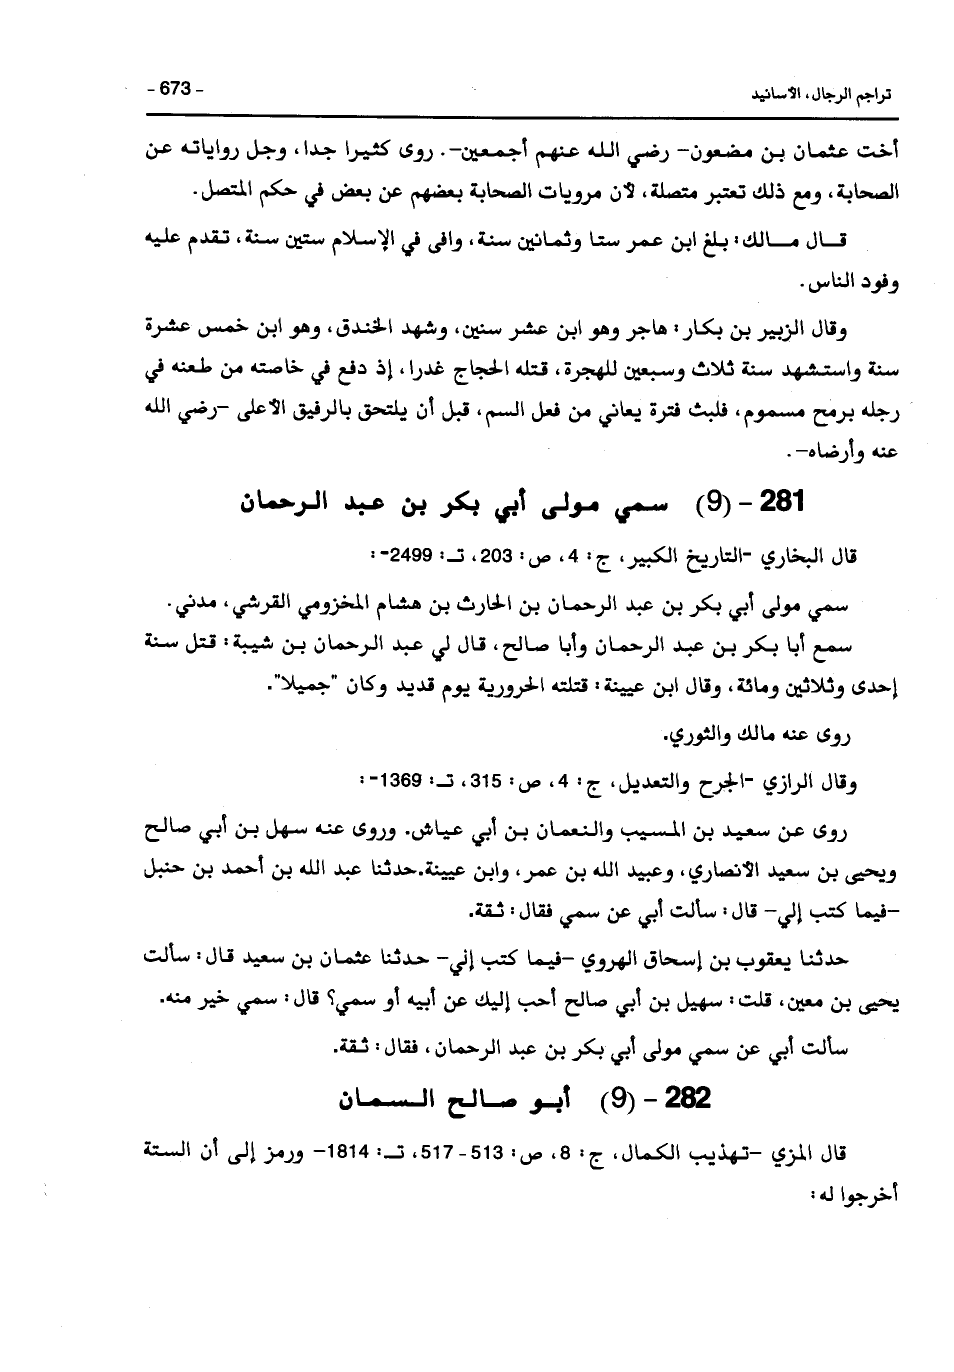 تراجم الرجال، الأسانيد
- 673 -
أخت عثمان بن مضعون- رضي الله عنهم أجمعين-. روى كثيرا جدا، وجل رواياته عن
الصحابة، ومع ذلك تعتبر متصلة، لأن مرويات الصحابة بعضهم عن بعض في حكم المتصل.
قال مالك: بلغ ابن عمر ستا وثمانين سنة، وافى في الإسلام ستين سنة، تقدم عليه
وفود الناس.
وقال الزبير بن بكار: هاجر وهو ابن عشر سنين، وشهد الخندق، وهو ابن خمس عشرة
سنة واستشهد سنة ثلاث وسبعين للهجرة، قتله الحجاج غدرا، إذ دفع في خاصته من طعنه في
رجله برمح مسموم، فلبث فترة يعاني من فعل السم، قبل أن يلتحق بالرفيق الأعلى -رضي الله
عنه وأرضاه-.
281 - (9) سمي مولى أبي بكر بن عبد الرحمان
قال البخاري -التاريخ الكبير، ج: 4، ص: 203، تـ: 2499-:
سمي مولى أبي بكر بن عبد الرحمان بن الحارث بن هشام المخزومي القرشي، مدني.
سمع أبا بكر بن عبد الرحمان وأبا صالح، قال لي عبد الرحمان بن شيبة: قتل سنة
إحدى وثلاثين ومائة، وقال ابن عيينة: قتلته الحرورية يوم قديد وكان "جميلا".
روى عنه مالك والثوري.
وقال الرازي -الجرح والتعديل، ج: 4، ص: 315، تـ: 1369-:
روى عن سعيد بن المسيب والنعمان بن أبي عياش. وروى عنه سهل بن أبي صالح
ويحيى بن سعيد الأنصاري، وعبيد الله بن عمر، وابن عيينة.حدثنا عبد الله بن أحمد بن حنبل
-فيما كتب إلي- قال: سألت أبي عن سمي فقال: ثقة.
حدثنا يعقوب بن إسحاق الهروي -فيما كتب إلي- حدثنا عثمان بن سعيد قال: سألت
يحيى بن معين، قلت: سهيل بن أبي صالح أحب إليك عن أبيه أو سمي؟ قال: سمي خير منه.
سألت أبي عن سمي مولى أبي بكر بن عبد الرحمان، فقال: ثقة.
282 - (9) أبو صالح السمان
قال المزي -تهذيب الكمال، ج: 8، ص: 513 - 517، تـ: 1814- ورمز إلى أن الستة
أخرجوا له: